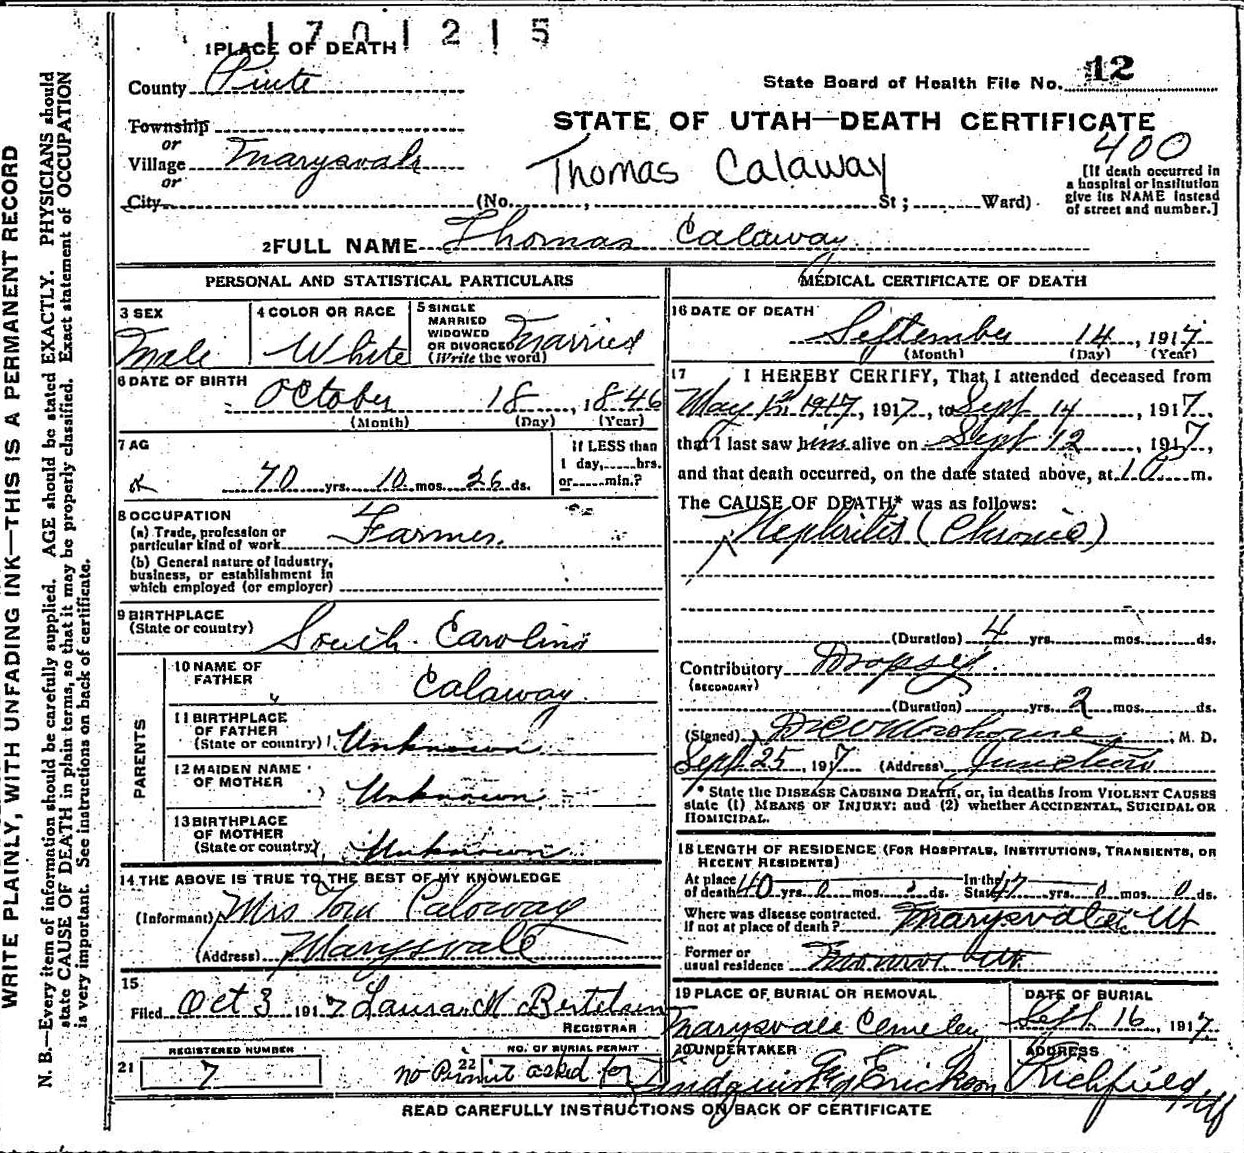 1701215
1 PLACE OF DEATH
County Piute
State Board of Health File No. 12
STATE OF UTAH—DEATH CERTIFICATE
Township
or
Village Marysvale
or
City
Thomas Calaway
400
[If death occurred in
a hospital or institution
give its NAME instead
of street and number.]
(No. , St ; Ward)
2 FULL NAME Thomas Calaway
PERSONAL AND STATISTICAL PARTICULARS
3 SEX
Male
4 COLOR OR RACE
White
5 SINGLE
MARRIED
WIDOWED
OR DIVORCED
(Write the word)
Married
6 DATE OF BIRTH
October 18, 1846
(Month) (Day) (Year)
7 AG
70 yrs. 10 mos. 26 ds.
If LESS than
1 day, hrs.
or min.?
8 OCCUPATION
(a) Trade, profession or
particular kind of work Farmer.
(b) General nature of industry,
business, or establishment in
which employed (or employer)
9 BIRTHPLACE
(State or country) South Carolina
PARENTS
10 NAME OF
FATHER Calaway.
11 BIRTHPLACE
OF FATHER
(State or country) Unknown
12 MAIDEN NAME
OF MOTHER Unknown
13 BIRTHPLACE
OF MOTHER
(State or country) Unknown
14 THE ABOVE IS TRUE TO THE BEST OF MY KNOWLEDGE
(Informant) Mrs Tom Caloway
(Address) Marysvale
15
Filed Oct 3 1917 Laura M Bertelsen
REGISTRAR
21
REGISTERED NUMBER
7
22
NO. OF BURIAL PERMIT
no Permit asked for
MEDICAL CERTIFICATE OF DEATH
16 DATE OF DEATH
September 14, 1917
(Month) (Day) (Year)
17 I HEREBY CERTIFY, That I attended deceased from
May 1st 1917, 1917, to Sept 14, 1917,
that I last saw him alive on Sept 12, 1917,
and that death occurred, on the date stated above, at 10 m.
The CAUSE OF DEATH* was as follows:
Nephritis (Chronic)
(Duration) 4 yrs. mos. ds.
Contributory Dropsy
(SECONDARY)
(Duration) yrs. 2 mos. ds.
(Signed) , M. D.
Sept. 25, 1917 (Address) Junction
* State the DISEASE CAUSING DEATH, or, in deaths from VIOLENT CAUSES
state (1) MEANS OF INJURY: and (2) whether ACCIDENTAL, SUICIDAL OR
HOMICIDAL.
18 LENGTH OF RESIDENCE (FOR HOSPITALS, INSTITUTIONS, TRANSIENTS, OR
RECENT RESIDENTS)
At place
of death 40 yrs. 0 mos. ds.
In the
State 47 yrs. 0 mos. 0 ds.
Where was disease contracted.
If not at place of death? Marysvale Ut
Former or
usual residence Monroe Ut
19 PLACE OF BURIAL OR REMOVAL
Marysvale Cemetery
DATE OF BURIAL
Sept. 16, 1917.
20 UNDERTAKER
Erickson
ADDRESS
Richfield
READ CAREFULLY INSTRUCTIONS ON BACK OF CERTIFICATE
WRITE PLAINLY, WITH UNFADING INK—THIS IS A PERMANENT RECORD
N. B.—Every item of information should be carefully supplied. AGE should be stated EXACTLY. PHYSICIANS should
state CAUSE OF DEATH in plain terms, so that it may be properly classified. Exact statement of OCCUPATION
is very important. See instructions on back of certificate.